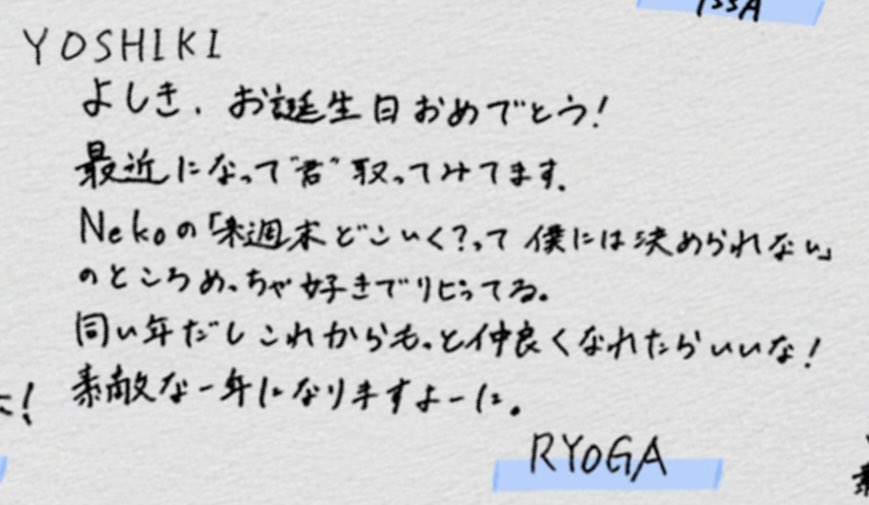 ISSA
YOSHIKI
よしき、お誕生日おめでとう!
最近になって"君"取ってみてます。
Nekoの「来週末どこいく?って 僕には決められない」
のところめっちゃ好きでリピってる。
同い年だしこれからもっと仲良くなれたらいいな!
素敵な一年になりますよーに。
RYOGA